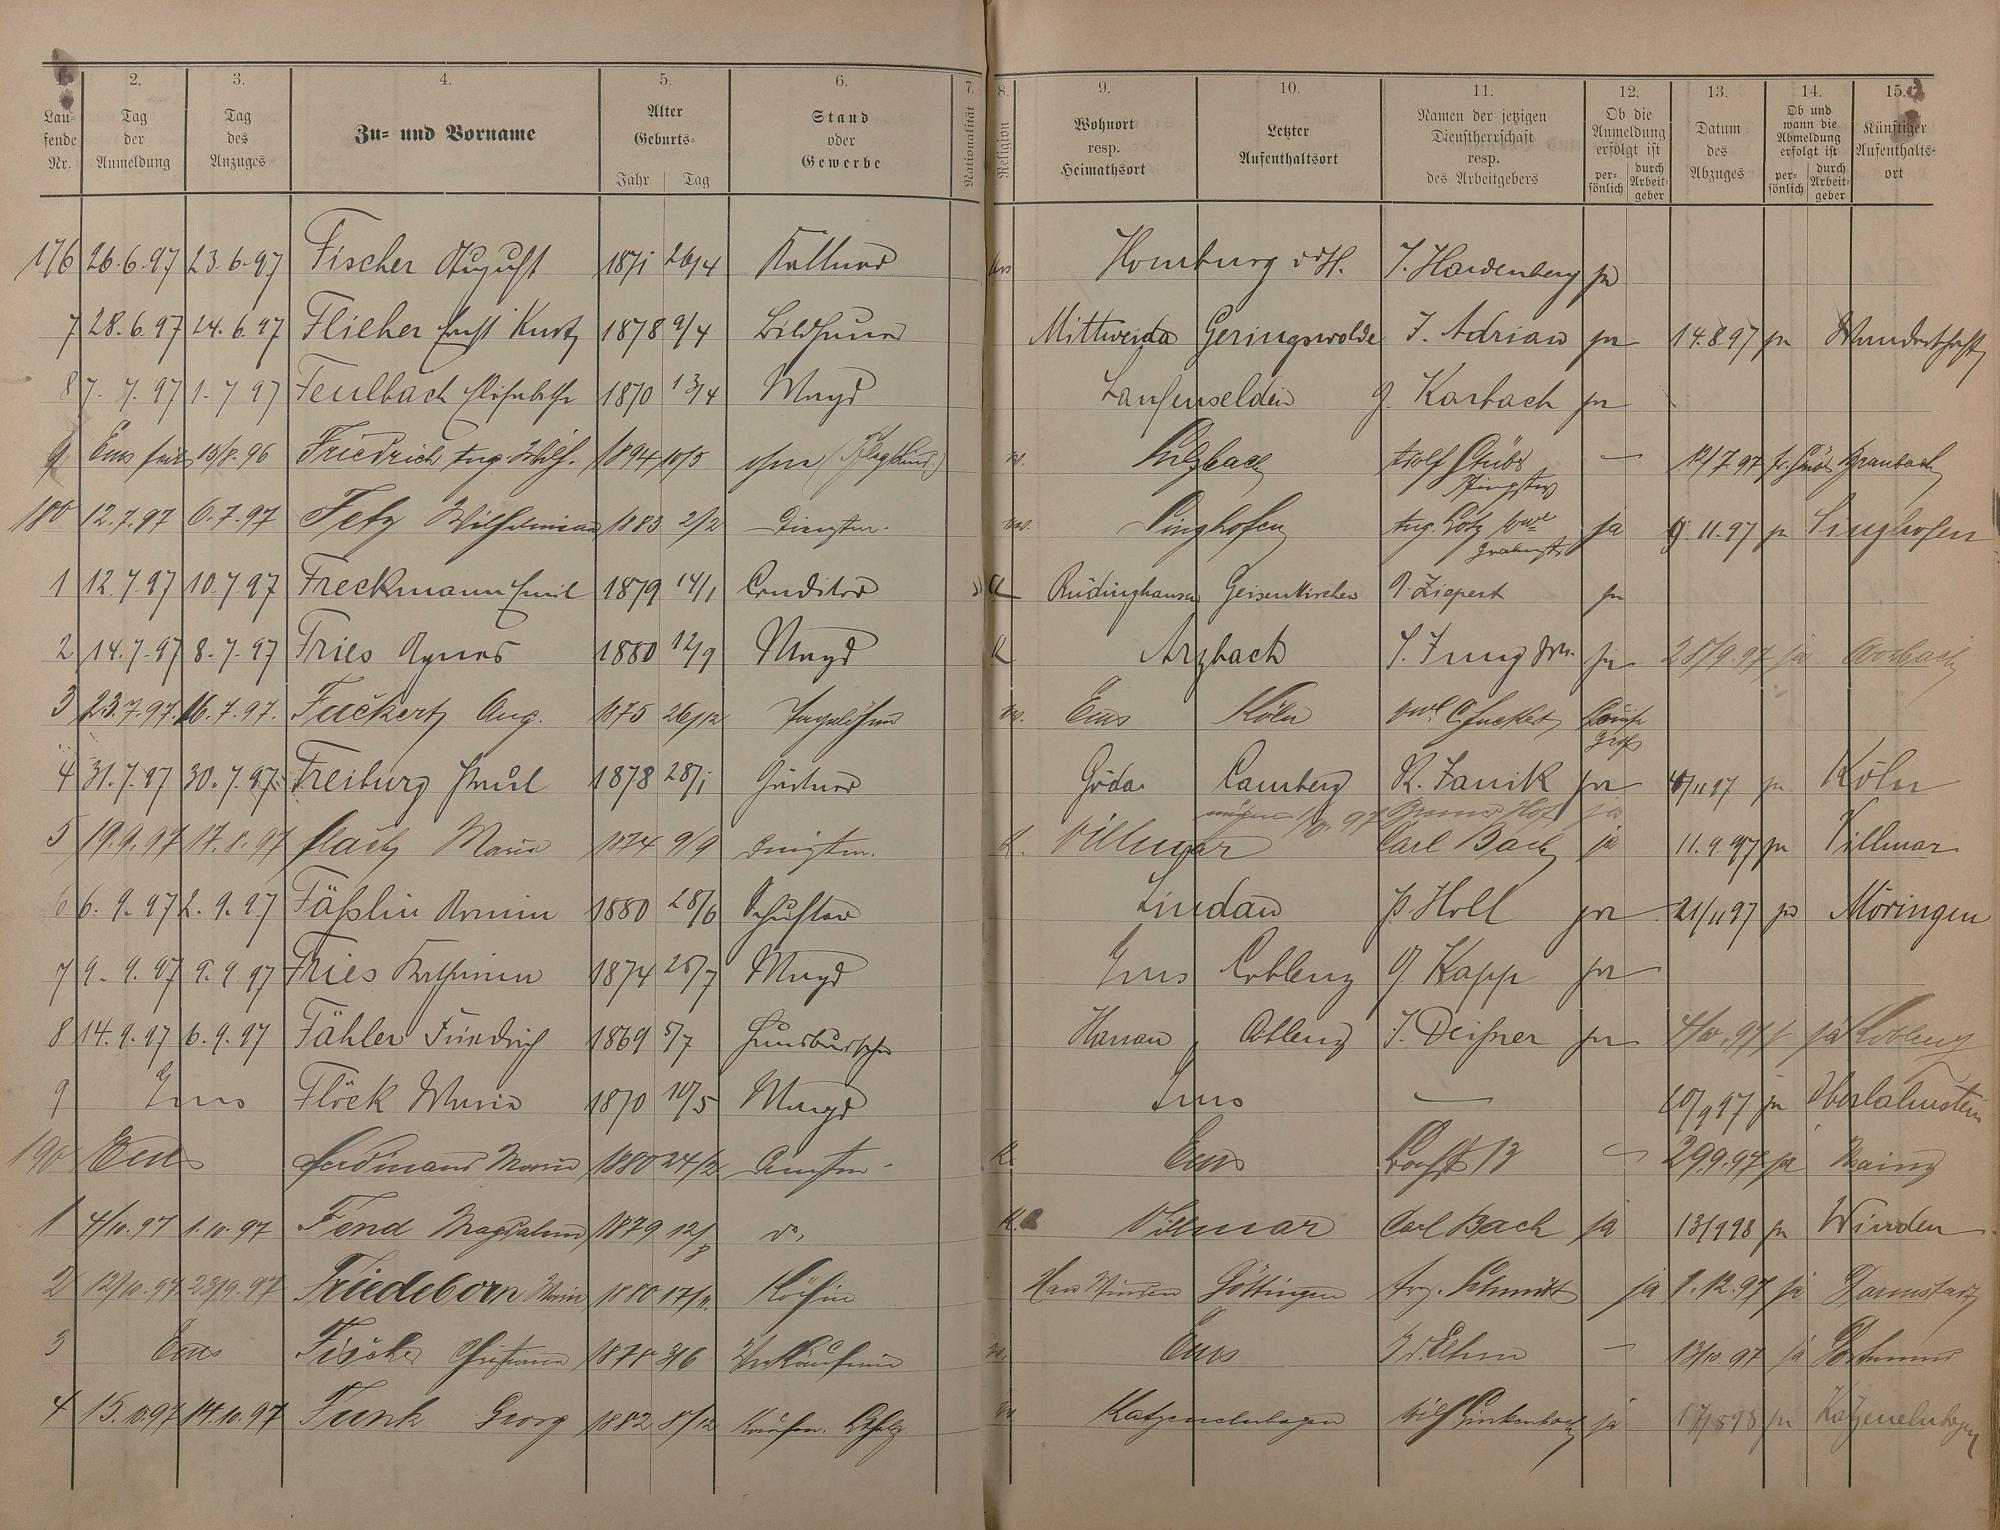 1. 2. 3. 4. 5. 6. 7. 8. 9. 10. 11. 12. 13. 14. 15.
Lau-
fende
Nr.
Tag
der
Anmeldung
Tag
des
Anzuges
Zu- und Vorname
Alter
Geburts-
Jahr Tag
Stand
oder
Gewerbe
Nationalität
Religion
Wohnort
resp.
Heimathsort
Letzter
Aufenthaltsort
Namen der jetzigen
Dienstherrschaft
resp.
des Arbeitgebers
Ob die
Anmeldung
erfolgt ist
per-
sönlich
durch
Arbeit-
geber
Datum
des
Abzuges
Ob und
wann die
Abmeldung
erfolgt ist
per-
sönlich
durch
Arbeit-
geber
Künftiger
Aufenthalts-
ort
176 26.6.97 23.6.97 Fischer August 1871 26/4 Kellner Homburg v d H. J. Hardenberg ja
7 28.6.97 24.6.97 Flieher Ernst Kurt 1878 9/4 Bildhauer Mittweida Geringswolde J. Adrian ja 14.8.97 ja Wanderschaft
8 7.7.97 1.7 97 Feulbach Elisabethe 1870 13/4 Magd Laufenselden J. Karbach ja
9 Ems seit 15/8.96 Friedrich Aug. Wilh. 1894 10/5 ohne (Pflegkind) Sulzbach Adolf — 12/7 97 Braubach
180 12.7.97 6.7.97 Fetz Wilhelmine 1883 2/2 Dienstm. Singhofen Aug. Lotz ja 9.11.97 ja Singhofen
1 12.7.97 10.7.97 Freckmann Emil 1879 14/1 Conditor Rüdinghausen Geisenkirchen J. Ziepert ja
2 14.7.97 8.7.97 Fries Agnes 1880 12/9 Magd K Arzbach J. Jung ja 28/9.97 ja Arzbach
3 23.7.97. 16.7.97. Fuckert Aug. 1875 26/12 Tagelöhner Ems Köln Fuckert
4 31.7.97 30.7.97 Freiburg Paul 1878 28/1 Gärtner Göda Camberg R. Janik ja 4/11 97 ja Köln
5 19.9.97 17.8.97 Flach Maria 1874 9/9 Dienstm. K. Villmar Carl Bach ja 11.9.97 ja Villmar
6 6.9.97 2.9.97 Fäßlin Armin 1880 28/6 Schuster Lindau P. Holl ja 21/11 97 ja Möringen
7 9.9.97 9.9 97 Fries Katharina 1874 25/7 Magd Ems Coblenz J. Kapp ja
8 14.9.97 6.9.97 Fähler Friedrich 1869 5/7 Hausbursche Hanau Coblenz J. Deißner ja 4/10.97 ja Coblenz
9 Ems Flöck Maria 1870 10/5 Magd Ems — 20/9 97 ja Oberlahnstein
190 Ems Ferdinand Maria 1880 24/2 Dienstm. K Ems — 29.9.97 ja Mainz
1 4/10.97 1.10.97 Fend Magdalena 1879 12/8 do. K. Villmar Carl Bach ja 13/1 98 ja Winden
2 12/10.97 23/9.97 Friedeborn Maria 1880 17/11. Köchin Göttingen Aug. Schmidt ja 1.12.97 ja Darmstadt
3 Ems Fischer Christiane 1878 3/6 Verkäuferin Ems — 13/10 97 ja Dortmund
4 15.10.97 14.10.97 Funk Georg 1882 8/12 Katzenelnbogen Wilh. Linkenbach ja 17/5 98 ja Katzenelnbogen